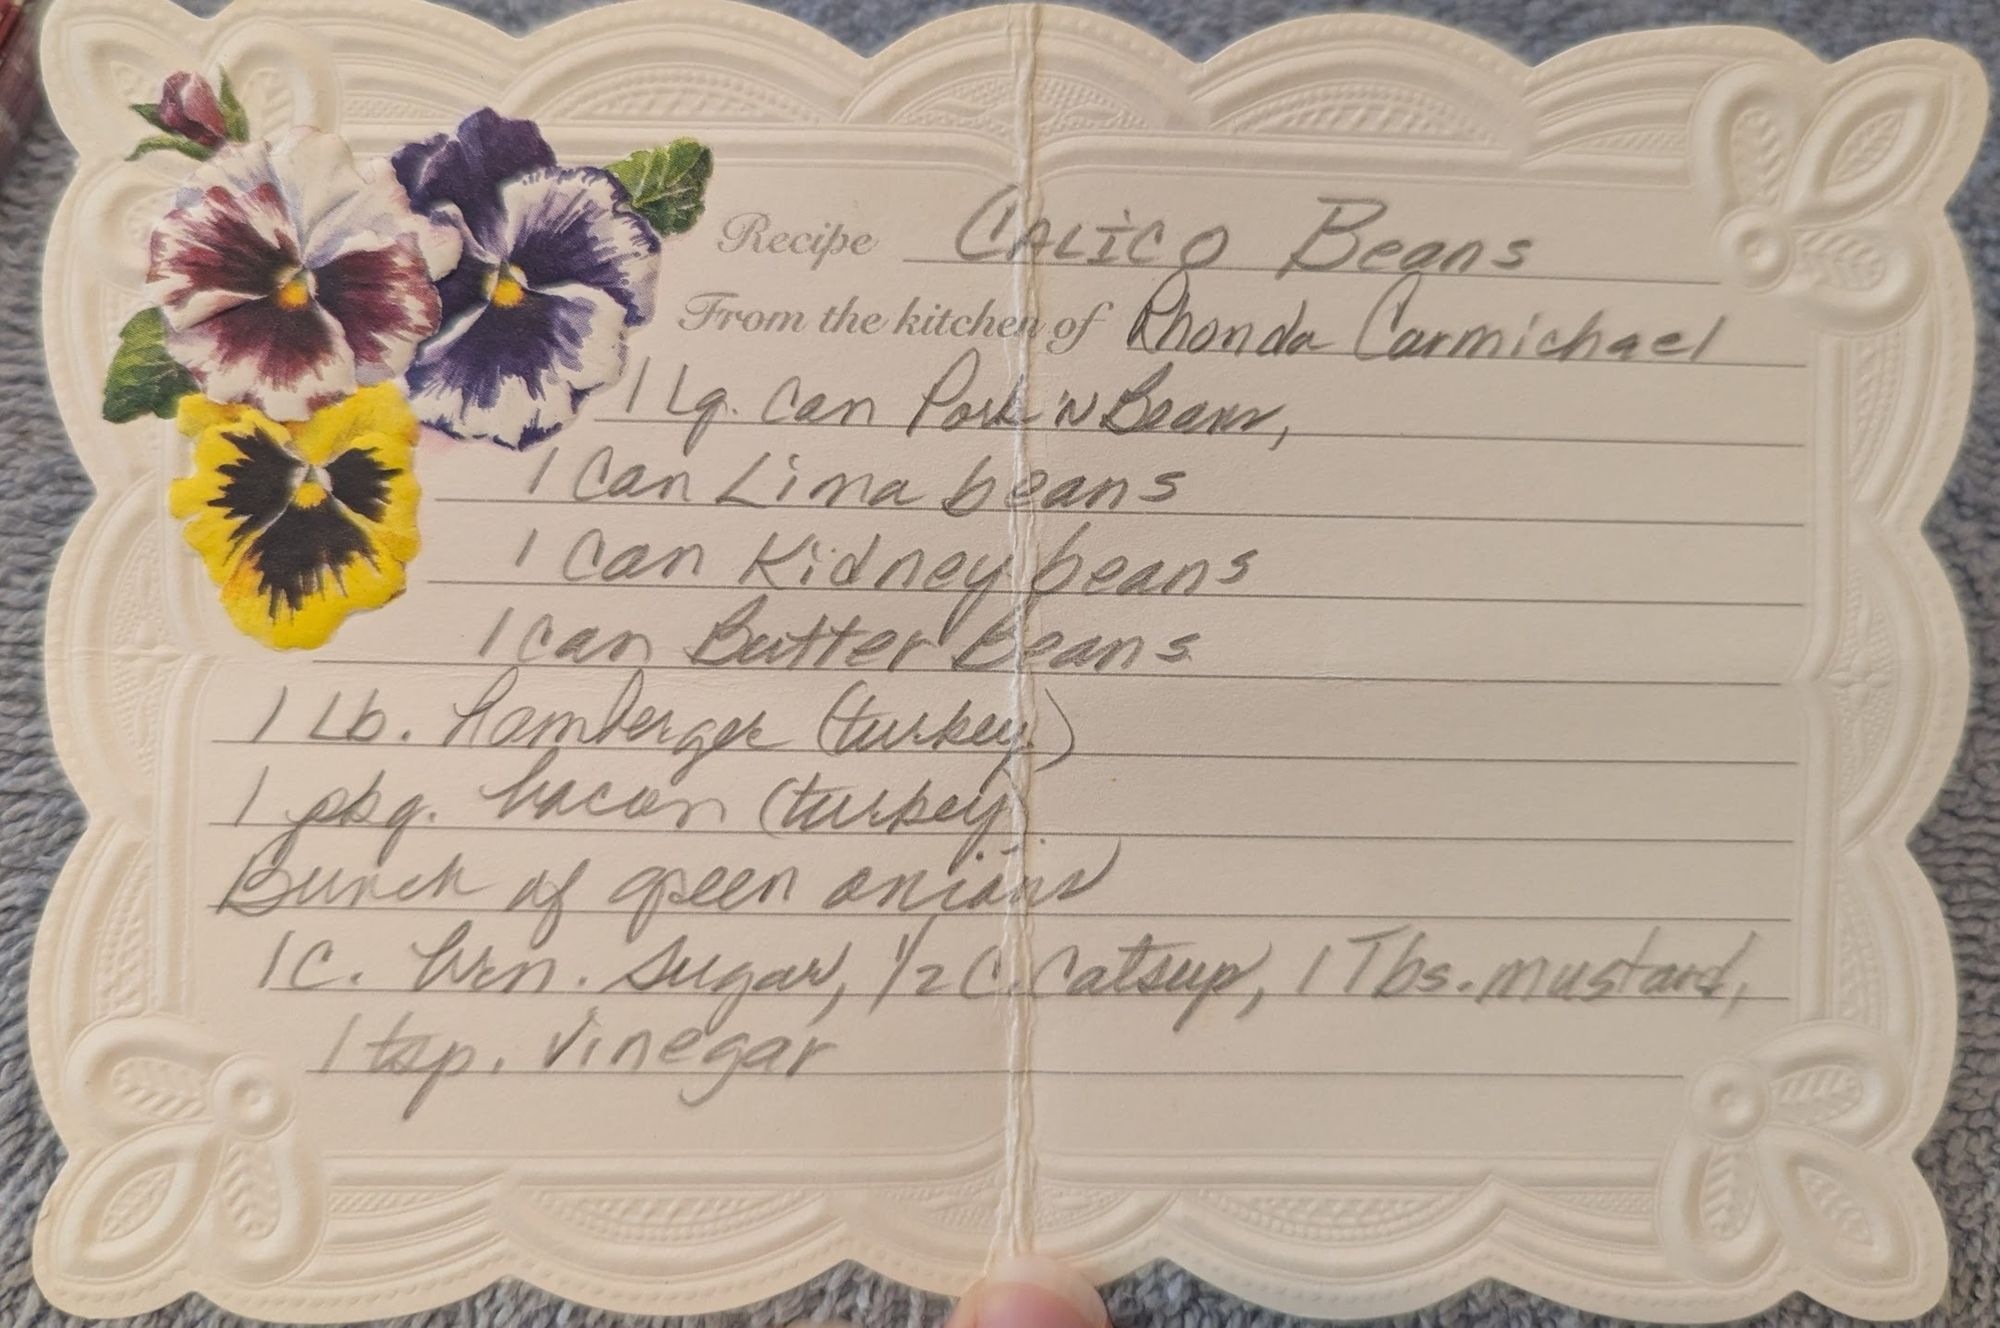 Recipe Calico Beans
From the kitchen of Rhonda Carmichael
1 Lg. can Pork 'N Beans,
1 can Lima beans
1 can Kidney beans
1 can Butter Beans
1 Lb. hamberger (turkey)
1 pkg. bacon (turkey)
Bunch of green onions
1 C. brn. sugar, 1/2 C. Catsup, 1 Tbs. mustard,
1 tsp. vinegar